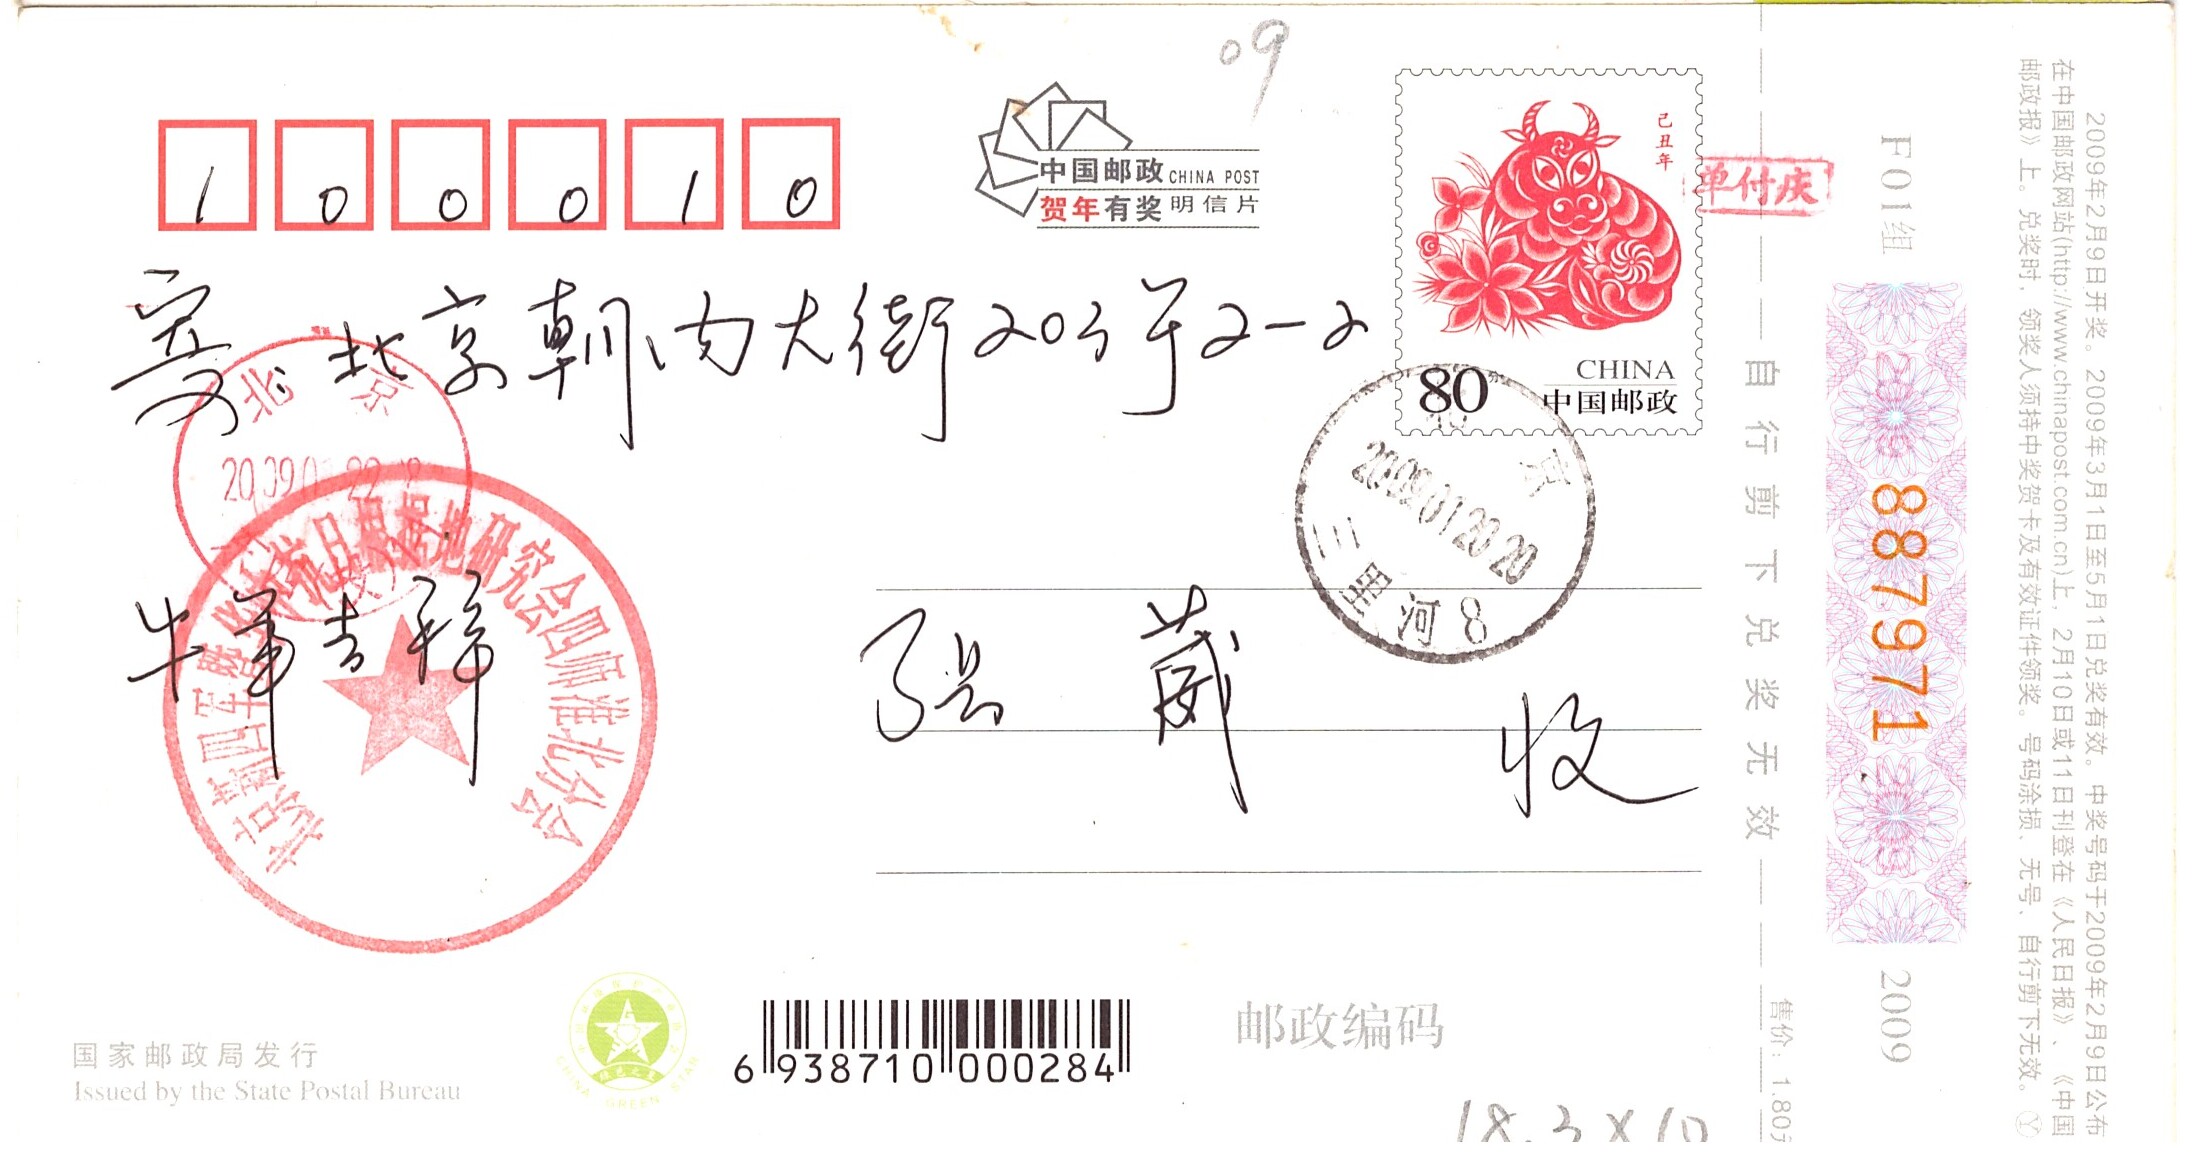 09
100010
中国邮政 CHINA POST
贺年有奖 明信片
己丑年
80分
CHINA
中国邮政
单付庆
寄: 北京朝内大街203号2-2
北京
京
2009.01.20.20
三里河8
牛年吉祥
张葳 收
北京新四军暨华中抗日根据地研究会四师淮北分会
国家邮政局发行
Issued by the State Postal Bureau
CHINA GREEN STAR
6 938710 000284
邮政编码
18.3×10
自行剪下兑奖无效
售价: 1.80元
F01组
887971
2009
2009年2月9日开奖。2009年3月1日至5月1日兑奖有效。中奖号码于2009年2月9日公布
在中国邮政网站(http://www.chinapost.com.cn)上, 2月10日或11日刊登在《人民日报》、《中国
邮政报》上。兑奖时, 领奖人须持中奖贺卡及有效证件领奖。号码涂损、无号、自行剪下无效。